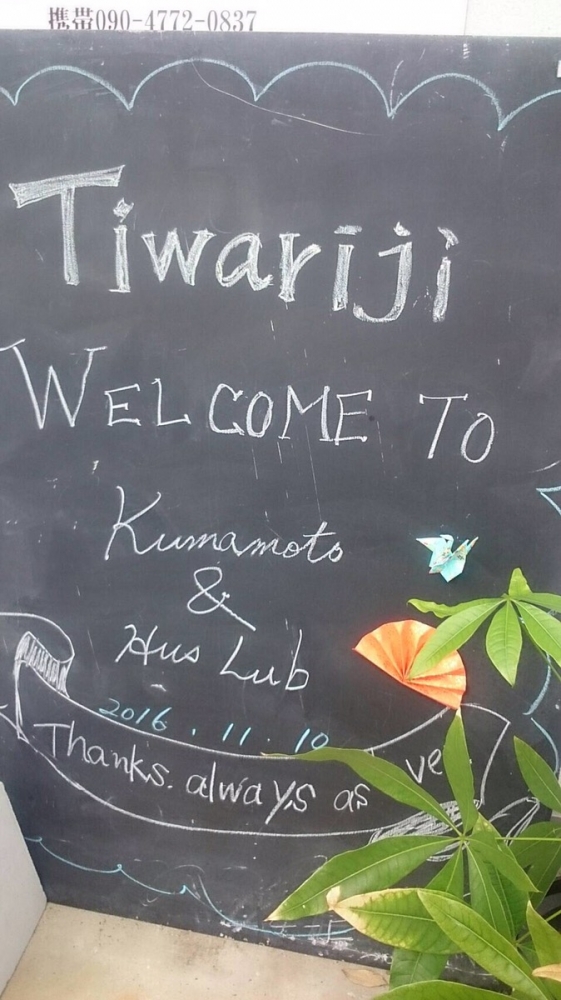 携帯090-4772-0837
Tiwariji
WELCOME TO
Kumamoto
&
Hus Lub
2016.11.10
Thanks. always as